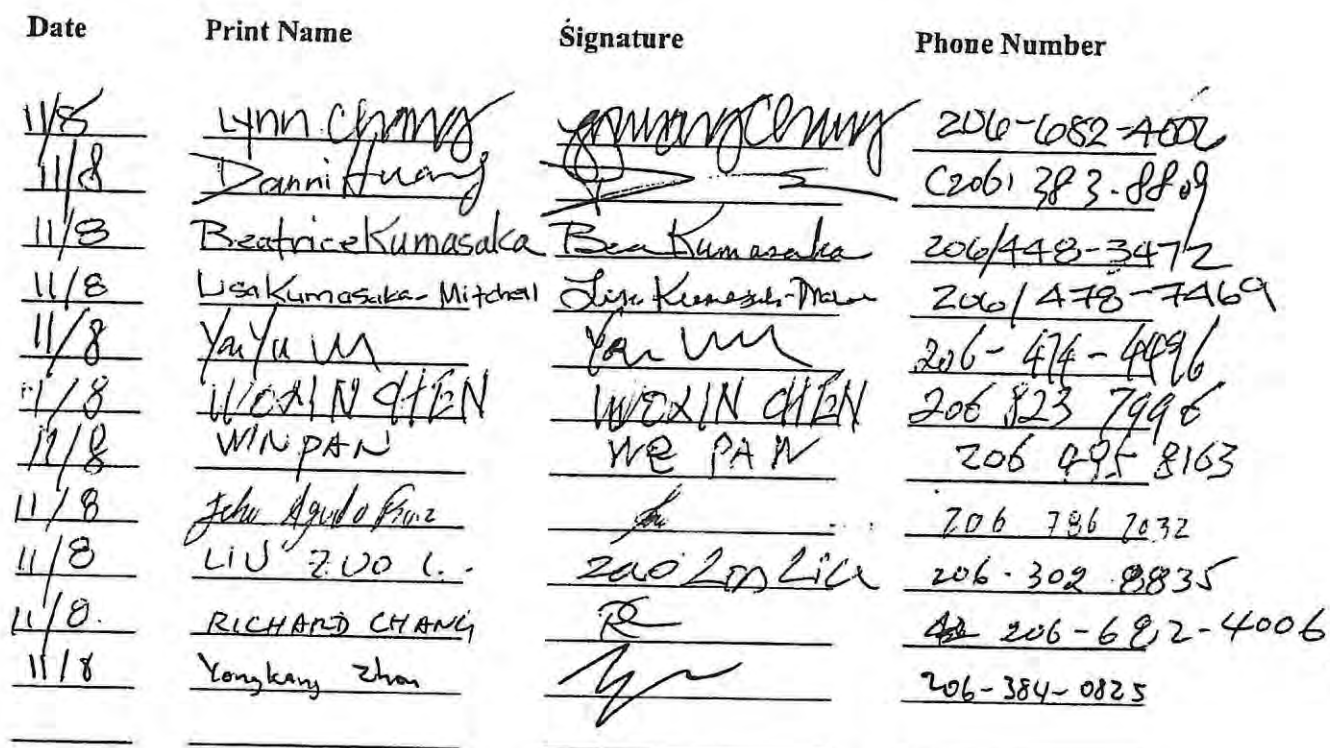 Date Print Name Signature Phone Number
11/8 Lynn Chang Chang 206-682-4006
11/8 Danni Huang (206) 383-8809
11/8 Beatrice Kumasaka Bea Kumasaka 206/448-3472
11/8 Lisa Kumasaka-Mitchell Lisa 206/478-7469
11/8 Yan Yu Yan 206-474-4496
11/8 WOXIN CHEN WOXIN CHEN 206 823 7996
11/8 WIN PAN PAN 206 495 8163
11/8 206 786 7032
11/8 LIU ZUO L.. 206-302 8835
11/8. RICHARD CHANG RC 206-682-4006
11/8 Yongkang Zhou 206-384-0825